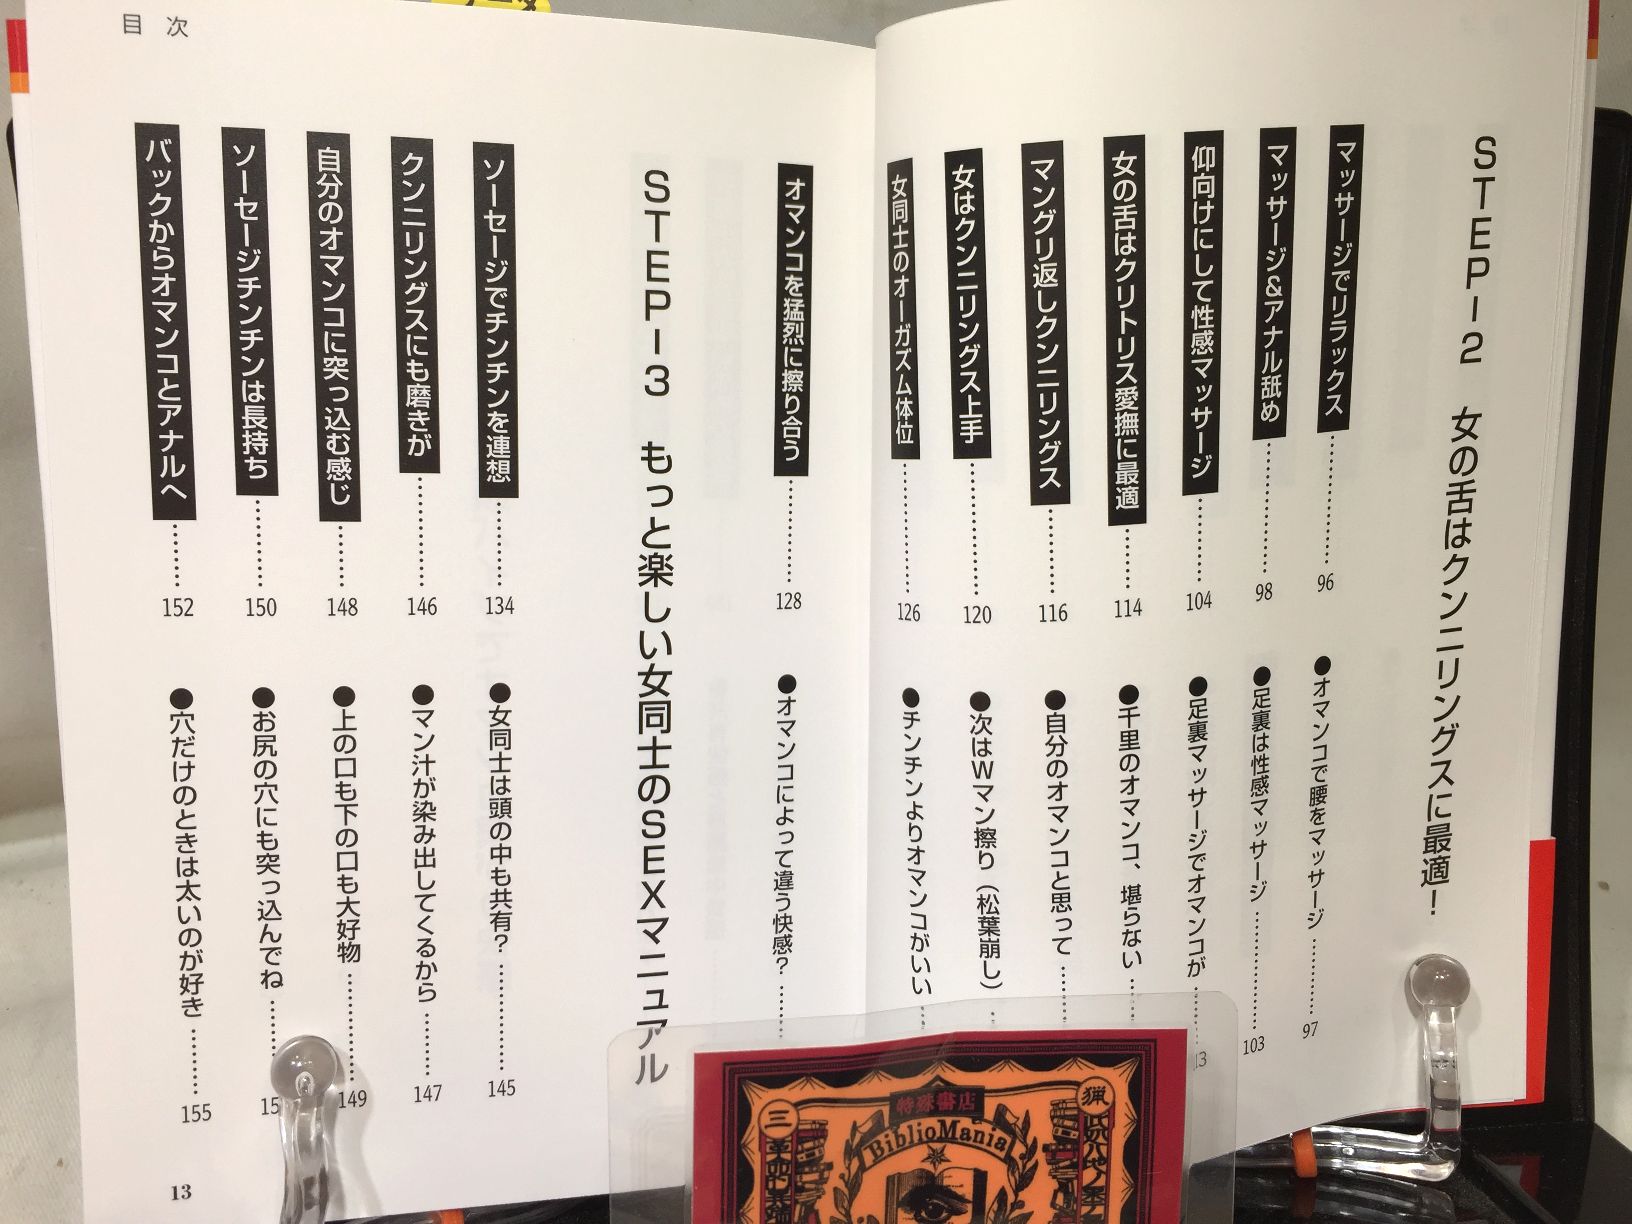 目次
STEP-2 女の舌はクンニリングスに最適！
マッサージでリラックス…………96
●オマンコで腰をマッサージ…………97
マッサージ&アナル舐め…………98
●足裏は性感マッサージ…………103
仰向けにして性感マッサージ…………104
●足裏マッサージでオマンコが…………
女の舌はクリトリス愛撫に最適…………114
●千里のオマンコ、堪らない…………
マングリ返しクンニリングス…………116
●自分のオマンコと思って…………
女はクンニリングス上手…………120
●次はWマン擦り（松葉崩し）
女同士のオーガズム体位…………126
●チンチンよりオマンコがいい
オマンコを猛烈に擦り合う…………128
●オマンコによって違う快感？…………
STEP-3 もっと楽しい女同士のSEXマニュアル
ソーセージでチンチンを連想…………134
●女同士は頭の中も共有？…………145
クンニリングスにも磨きが…………146
●マン汁が染み出してくるから…………147
自分のオマンコに突っ込む感じ…………148
●上の口も下の口も大好物…………149
ソーセージチンチンは長持ち…………150
●お尻の穴にも突っ込んでね…………
バックからオマンコとアナルへ…………152
●穴だけのときは太いのが好き…………155
13
特殊書店
BiblioMania
三
猟